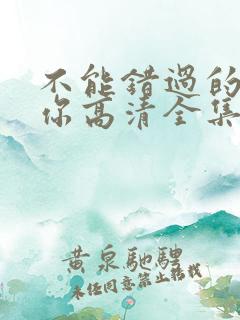 不能错过的
你高清全集
黄泉馳騁
未经同意禁止转载